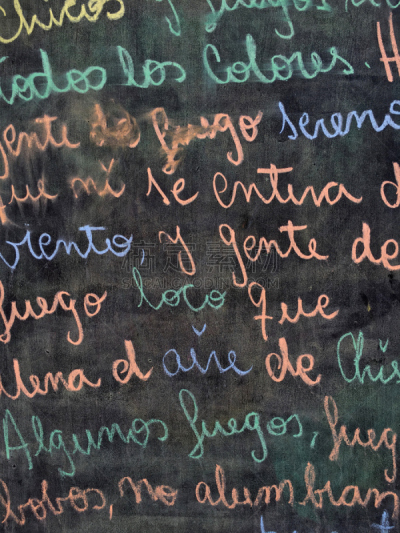 Chicos y fuegos
todos los Colores. H
gente de fuego sereno
que ni se entera d
viento, y gente de
fuego loco que
llena el aire de Chis
Algunos fuegos, fueg
bobos, no alumbran